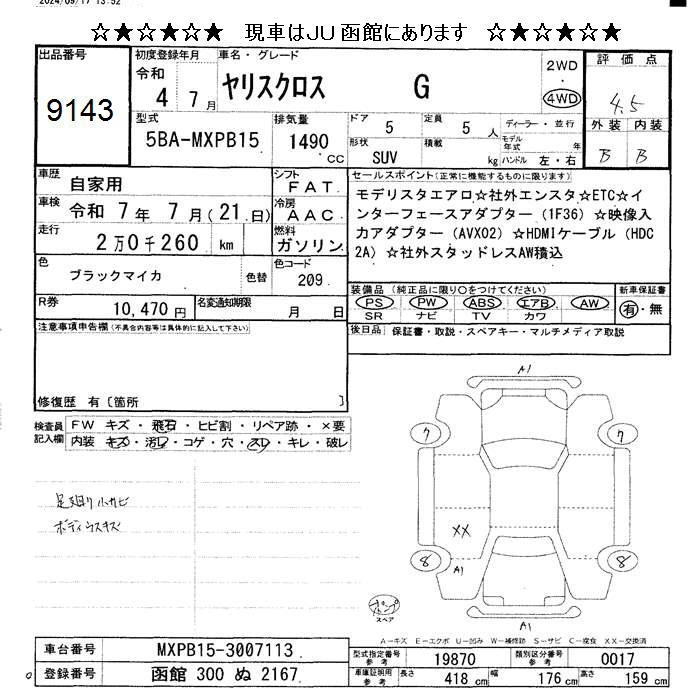 2024/09/17 13:52
☆★☆★☆★☆ 現車はJU函館にあります ☆★☆★☆★☆
出品番号 9143
初度登録年月 令和 4 7月
車名・グレード ヤリスクロス G
2WD ・ 4WD
評価点 4.5
外装 B 内装 B
型式 5BA-MXPB15
排気量 1490 CC
ドア 5 定員 5人
形状 SUV 積載 kg
ディーラー・並行
モデル年式 年
ハンドル 左・右
車歴 自家用
シフト FAT
車検 令和 7年 7月(21日)
冷房 AAC
走行 2万0千260 km
燃料 ガソリン
色 ブラックマイカ 色替
色コード 209
R券 10,470円
名変通知期限 月 日
セールスポイント(正常に機能するものに限ります)
モデリスタエアロ☆社外エンスタ☆ETC☆イ
ンターフェースアダプター(1F36)☆映像入
力アダプター(AVX02)☆HDMIケーブル(HDC
2A)☆社外スタッドレスAW積込
装備品(純正品に限り○をつけてください) 新車保証書
PS PW ABS エアB AW 有・無
SR ナビ TV カワ
後日品 保証書・取説・スペアキー・マルチメディア取説
注意事項申告欄(不具合内容等は具体的に記入して下さい)
修復歴 有〔箇所 〕
検査員記入欄
FW キズ・飛石・ヒビ割・リペア跡・×要
内装 キズ・汚レ・コゲ・穴・スレ・キレ・破レ
足廻り小サビ
ボディウスキズ
A1
7 7
XX
8 A1 8
A1
スペア
A-キズ E-エクボ U-凹み W-補修跡 S-サビ C-腐食 XX-交換済
車台番号 MXPB15-3007113
登録番号 函館 300 ぬ 2167
型式指定番号 参考 19870
類別区分番号 参考 0017
車庫証明用 参考 長さ 418 cm 幅 176 cm 高さ 159 cm